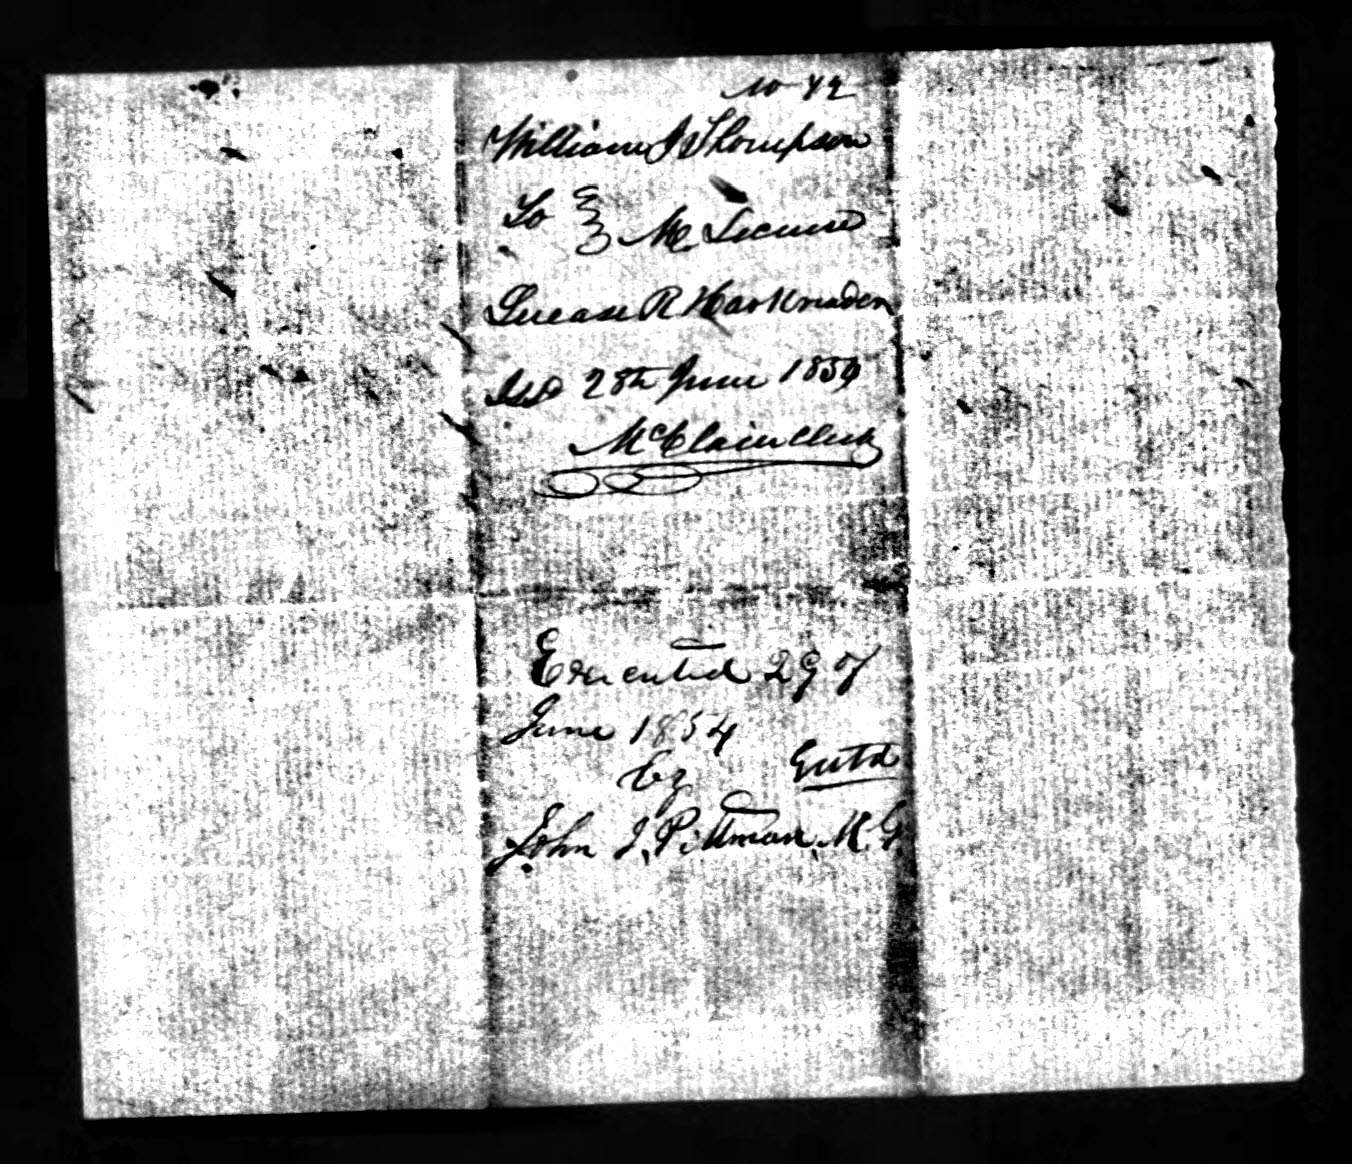 No 42
William J Thompson
To M License
Lucase R Harknaden
Isd 28th June 1854
McClain Clerk
Executed 29 of
June 1854
by Entd
John J. Pittman. M. G.